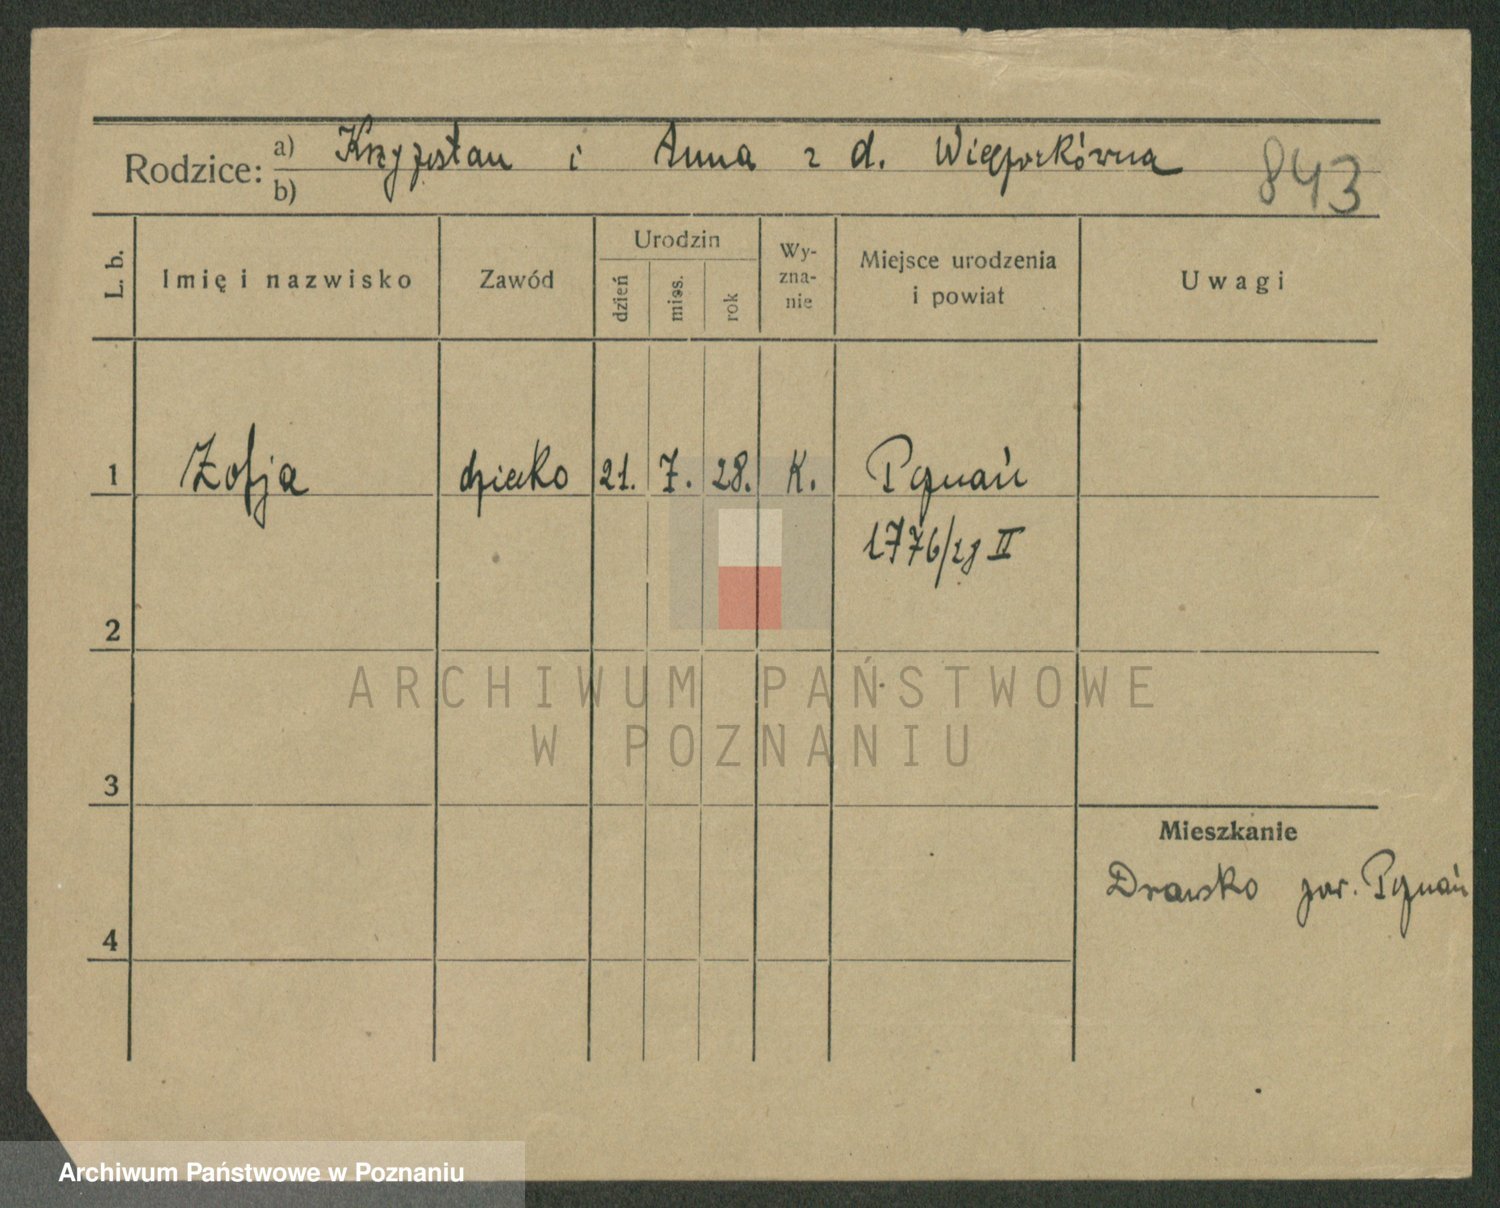 Rodzice: a) Krzyżostan i Anna z d.
b)
843
L. b.
Imię i nazwisko
Zawód
Urodzin
dzień
mies.
rok
Wy-
zna-
nie
Miejsce urodzenia
i powiat
Uwagi
1 Zofja dziecko 21. 7. 28. K. Poznań
1776/28 II
2
3
4
Mieszkanie
Drawsko pow. Poznań
ARCHIWUM PAŃSTWOWE
W POZNANIU
Archiwum Państwowe w Poznaniu